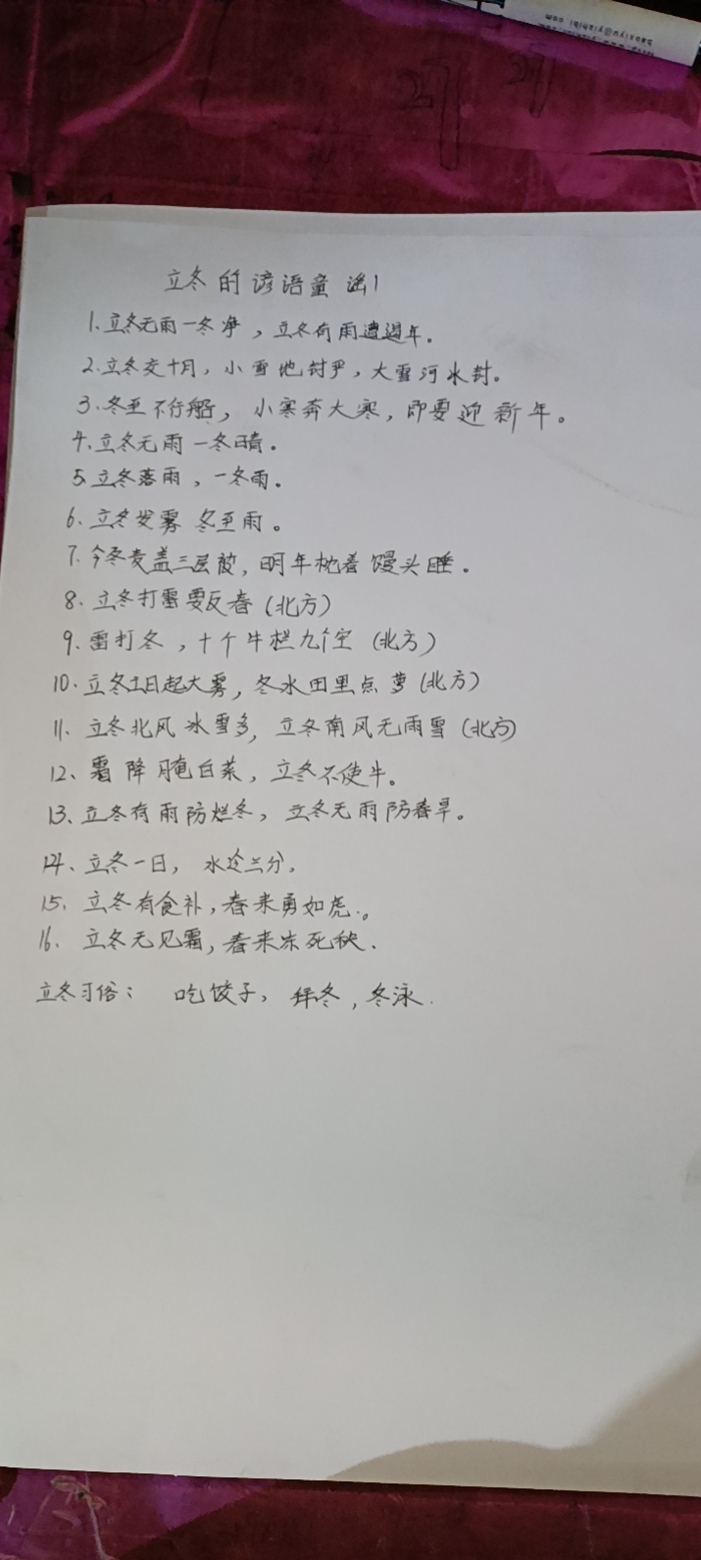 立冬的谚语童谣1
1.立冬无雨一冬净，立冬有雨遭遢年。
2.立冬交十月，小雪地封严，大雪河冰封。
3.冬至不行船，小寒奔大寒，即要迎新年。
4.立冬无雨一冬晴。
5.立冬落雨，一冬雨。
6.立冬发雾 冬至雨。
7.今冬麦盖三层被，明年枕着馒头睡。
8.立冬打雷要反春（北方）
9.雷打冬，十个牛栏九个空（北方）
10.立冬之日起大雾，冬水田里点萝（北方）
11.立冬北风冰雪多，立冬南风无雨雪（北方）
12、霜降腌白菜，立冬不使牛。
13、立冬有雨防烂冬，立冬无雨防春旱。
14、立冬一日，水冷三分.
15.立冬有食补，春来勇如虎.。
16.立冬无见霜，春来冻死秧.
立冬习俗：吃饺子，拜冬，冬泳.
27 27